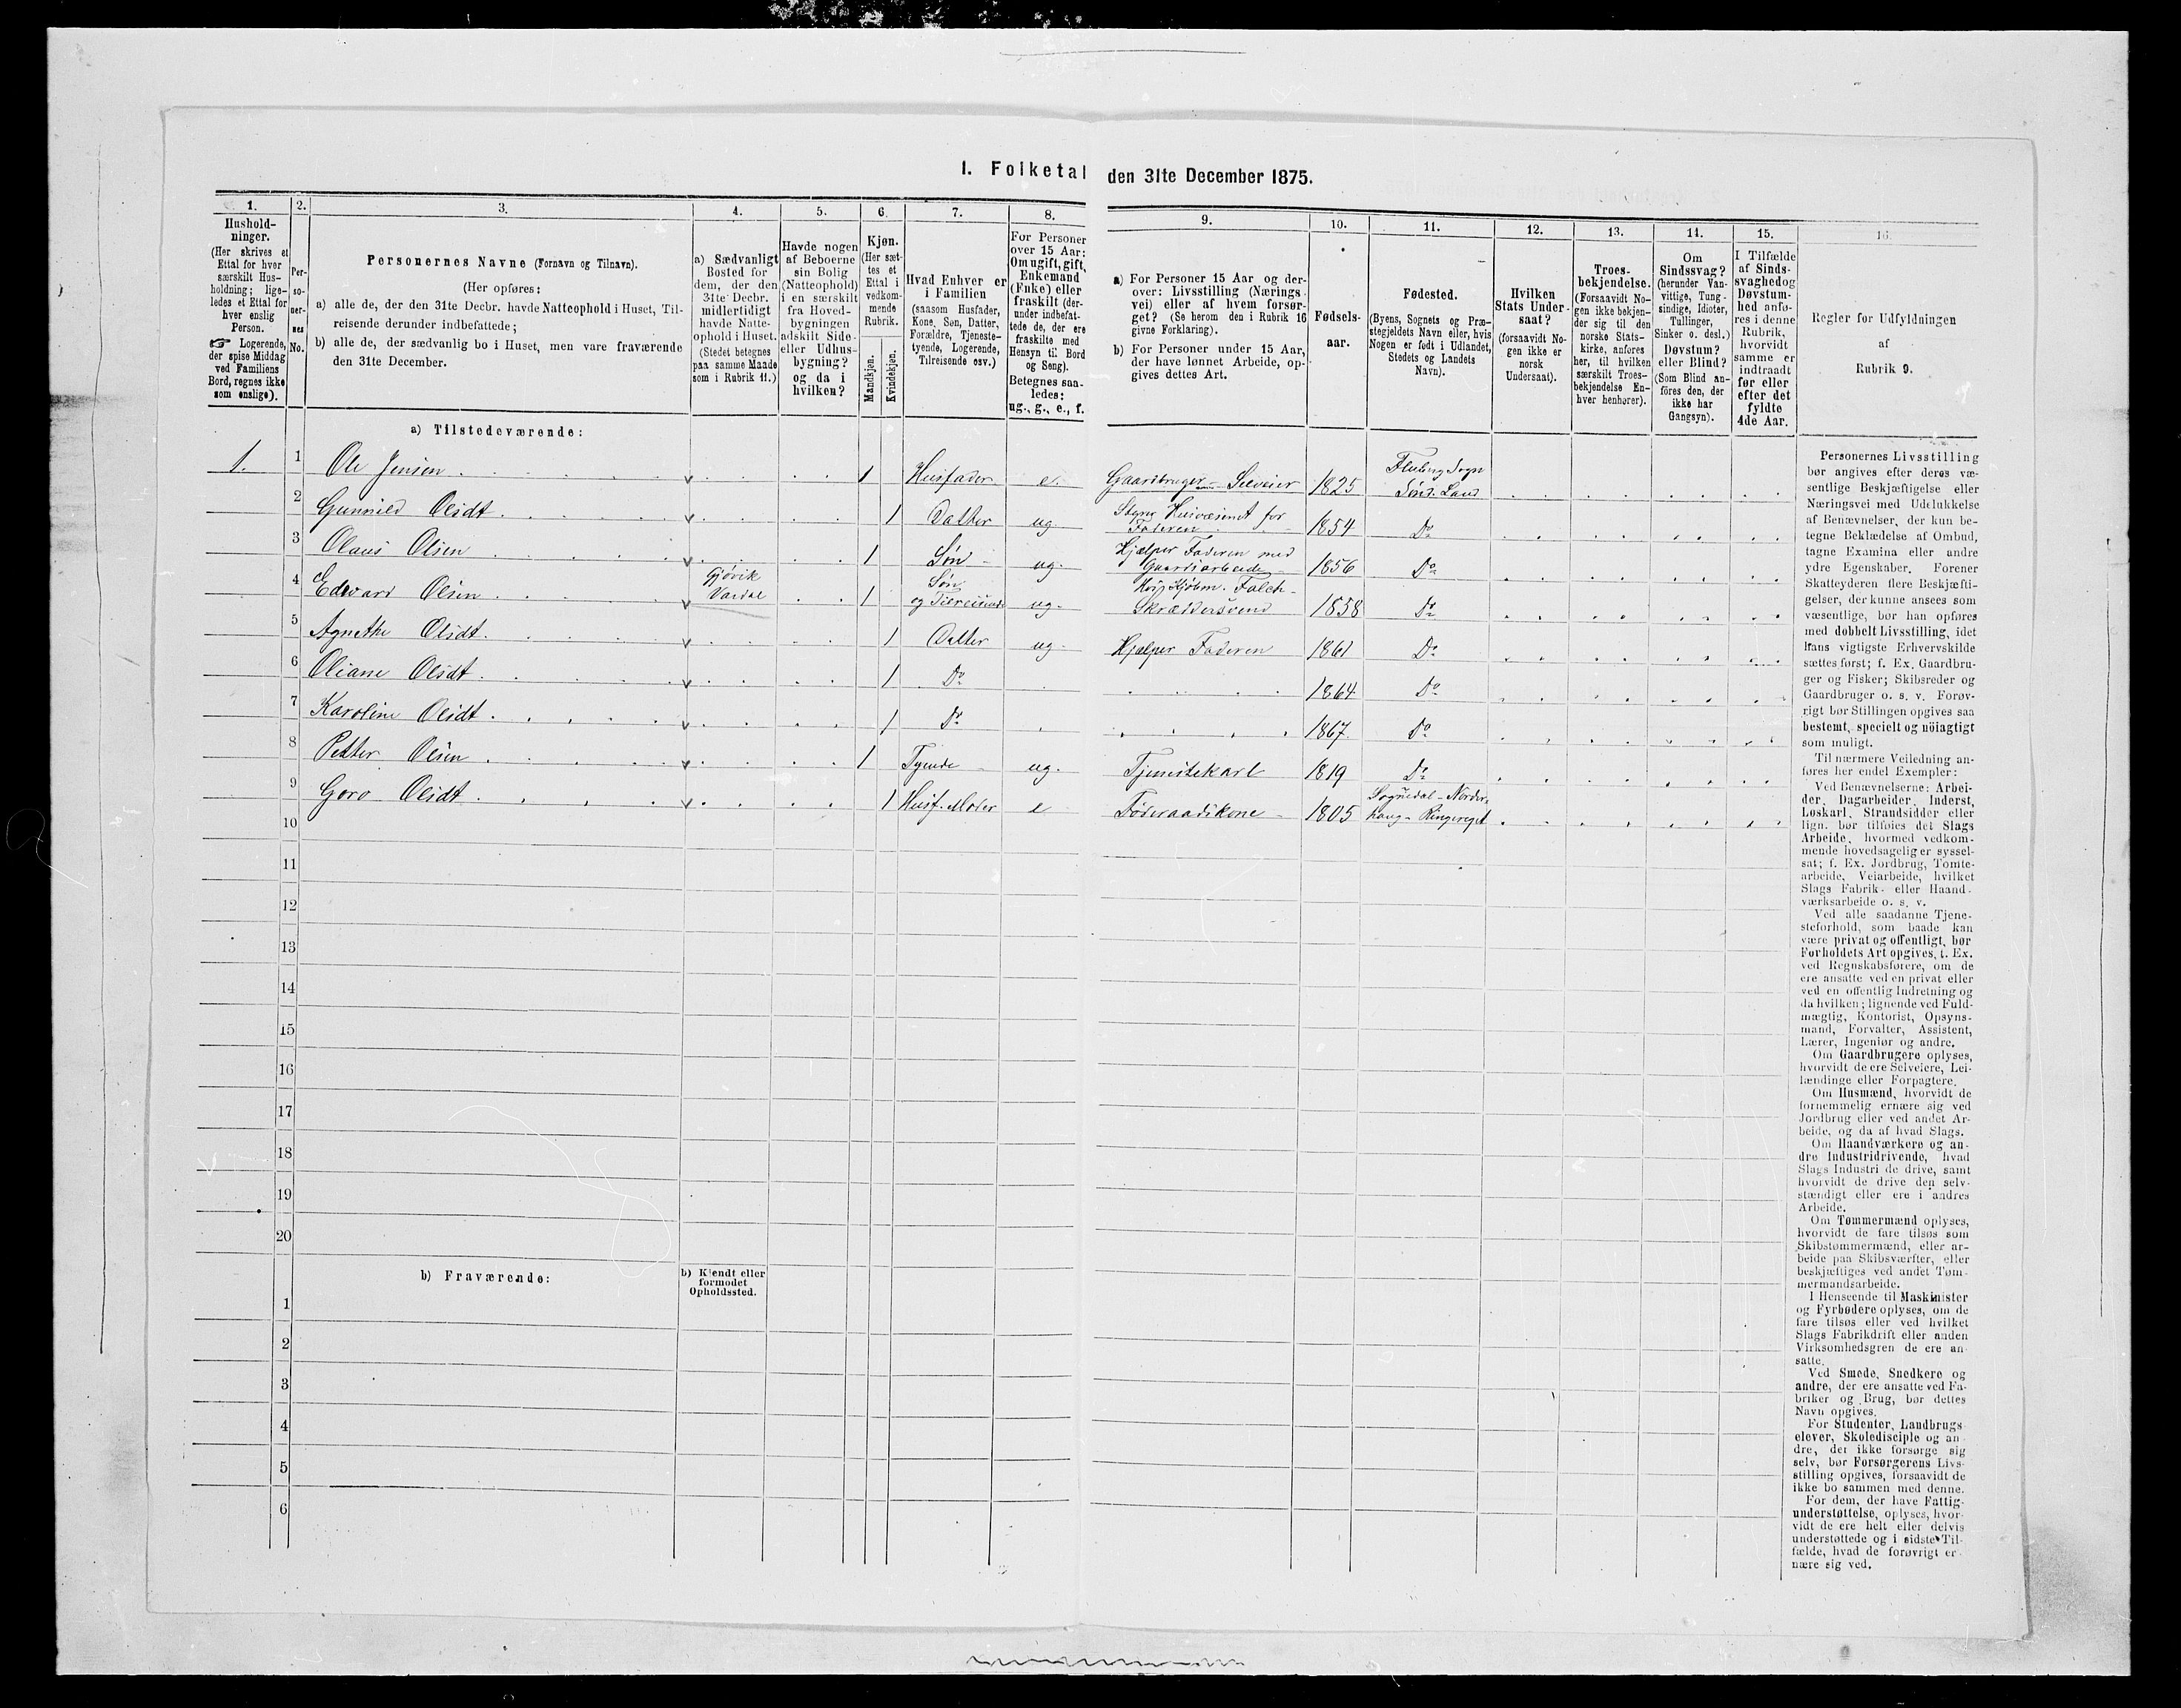 I. Folketal den 31te December 1875.
1.
Hushold-
ninger.
(Her skrives et
Ettal for hver
særskilt Hus-
holdning; lige-
ledes et Ettal for
hver enslig
Person.
☞ Logerende,
der spise Middag
ved Familiens
Bord, regnes ikke
som enslige).
2.
Per-
so-
ner-
nes
No.
3.
Personernes Navne (Fornavn og Tilnavn).
(Her opføres:
a) alle de, der den 31te Decbr. havde Natteophold i Huset, Til-
reisende derunder indbefattede;
b) alle de, der sædvanlig bo i Huset, men vare fraværende
den 31te December.
4.
a) Sædvanligt
Bosted for
dem, der den
31te Decbr.
midlertidigt
havde Natte-
ophold i Huset.
(Stedet betegnes
paa samme Maade
som i Rubrik 11.)
5.
Havde nogen
af Beboerne
sin Bolig
(Natteophold)
i en særskilt
fra Hoved-
bygningen
adskilt Side-
eller Udhus-
bygning?
og da i
hvilken?
6.
Kjøn.
(Her sæt-
tes et
Ettal i
vedkom-
mende
Rubrik.
Mandkjøn.
Kvindekjøn.
7.
Hvad Enhver er
i Familien
(saasom Husfader,
Kone, Søn, Datter,
Forældre, Tjeneste-
tyende, Logerende,
Tilreisende osv.)
8.
For Personer
over 15 Aar:
Om ugift, gift,
Enkemand
(Enke) eller
fraskilt (der-
under indbefat-
tede de, der ere
fraskilte med
Hensyn til Bord
og Seng).
Betegnes saa-
ledes:
ug., g., e., f.
9.
a) For Personer 15 Aar og der-
over: Livsstilling (Nærings-
vei) eller af hvem forsør-
get? (Se herom den i Rubrik 16
givne Forklaring).
b) For Personer under 15 Aar,
der have lønnet Arbeide, op-
gives dettes Art.
10.
Fødsels-
aar.
11.
Fødested.
(Byens, Sognets og Præ-
stegjeldets Navn eller, hvis
Nogen er født i Udlandet,
Stedets og Landets
Navn).
12.
Hvilken
Stats Under-
saat?
(forsaavidt No-
gen ikke er
norsk
Undersaat).
13.
Troes-
bekjendelse.
(Forsaavidt No-
gen ikke bekjen-
der sig til den
norske Stats-
kirke, anføres
her, til hvilken
særskilt Troes-
bekjendelse En-
hver henhører).
14.
Om
Sindssvag?
(herunder Van-
vittige, Tung-
sindige, Idioter,
Tullinger,
Sinker o. desl.)
Døvstum?
eller Blind?
(Som Blind an-
føres den, der
ikke har
Gangsyn).
15.
I Tilfælde
af Sinds-
svaghed og
Døvstum-
hed anfø-
res i denne
Rubrik,
hvorvidt
samme er
indtraadt
før eller
efter det
fyldte
4de Aar.
16.
Regler for Udfyldningen
af
Rubrik 9.
a) Tilstedeværende:
1. 1 Ole Jensen v 1 Husfader e. Gaardbruger - Selveier 1825 Fluberg Sogn
Sønd. Land
2 Gunnild Olsdt v 1 Datter ug. Styrer Husvæsenet for
Faderen 1854 Do
3 Olaus Olsen v 1 Søn ug. Hjælper Faderen med
Gaardsarbeide 1856 Do
4 Edvard Olsen Gjøvik
Vardal v 1 Søn
og Tilreisende ug. 
Skræddersvend 1858 Do
5 Agnethe Olsdt. v 1 Datter ug. Hjælper Faderen 1861 Do
6 Oliane Olsdt. v 1 Do 1864 Do
7 Karoline Olsdt. v 1 Do 1867. Do
8 Petter Olsen v 1 Tyende ug. Tjenestekarl 1819 Do
9 Goro Olsdt. v 1 Husf. Moder e Føderaadskone 1805 Sognedal - Norder-
houg - Ringeriget
10
11
12
13
14
15
16
17
18
19
20
b) Fraværende:
b) Kjendt eller
formodet
Opholdssted.
1
2
3
4
5
6
Personernes Livsstilling
bør angives efter deres væ-
sentlige Beskjæftigelse eller
Næringsvei med Udelukkelse
af Benævnelser, der kun be-
tegne Beklædelse af Ombud,
tagne Examina eller andre
ydre Egenskaber. Forener
Skatteyderen flere Beskjæfti-
gelser, der kunne ansees som
væsentlige, bør han opføres
med dobbelt Livsstilling, idet
hans vigtigste Erhvervskilde
sættes først; f. Ex. Gaardbru-
ger og Fisker; Skibsreder og
Gaardbruger o. s. v. Forøv-
rigt bør Stillingen opgives saa
bestemt, specielt og nøiagtigt
som muligt.
Til nærmere Veiledning an-
føres her endel Exempler:
Ved Benævnelserne: Arbei-
der, Dagarbeider, Inderst,
Løskarl, Strandsidder eller
lign. bør tilføies det Slags
Arbeide, hvormed vedkom-
mende hovedsagelig er syssel-
sat; f. Ex. Jordbrug, Tomte-
arbeide, Veiarbeide, hvilket
Slags Fabrik- eller Haand-
værksarbeide o. s. v.
Ved alle saadanne Tjene-
steforhold, som baade kan
være privat og offentligt, bør
Forholdets Art opgives, f. Ex.
ved Regnskabsførere, om de
ere ansatte ved en privat eller
ved en offentlig Indretning og
da hvilken; lignende ved Fuld-
mægtig, Kontorist, Opsyns-
mand, Forvalter, Assistent,
Lærer, Ingeniør og andre.
Om Gaardbrugere oplyses,
hvorvidt de ere Selveiere, Lei-
lændinge eller Forpagtere.
Om Husmænd, hvorvidt de
fornemmelig ernære sig ved
Jordbrug eller ved andet Ar-
beide, og da af hvad Slags.
Om Haandværkere og an-
dre Industridrivende, hvad
Slags Industri de drive, samt
hvorvidt de drive den selv-
stændigt eller ere i andres
Arbeide.
Om Tømmermænd oplyses,
hvorvidt de fare tilsøs som
Skibstømmermænd, eller ar-
beide paa Skibsværfter, eller
beskjæftiges ved andet Tøm-
mermandsarbeide.
I Henseende til Maskinister
og Fyrbødere oplyses, om de
fare tilsøs eller ved hvilket
Slags Fabrikdrift eller anden
Virksomhedsgren de ere an-
satte.
Ved Smede, Snedkere og
andre, der ere ansatte ved Fa-
briker og Brug, bør dettes
Navn opgives.
For Studenter, Landbrugs-
elever, Skoledisciple og an-
dre, der ikke forsørge sig
selv, bør Forsørgerens Livs-
stilling opgives, forsaavidt de
ikke bo sammen med denne.
For dem, der have Fattig-
understøttelse, oplyses, hvor-
vidt de ere helt eller delvis
understøttede og i sidste Til-
fælde, hvad de forøvrigt er-
nære sig ved.